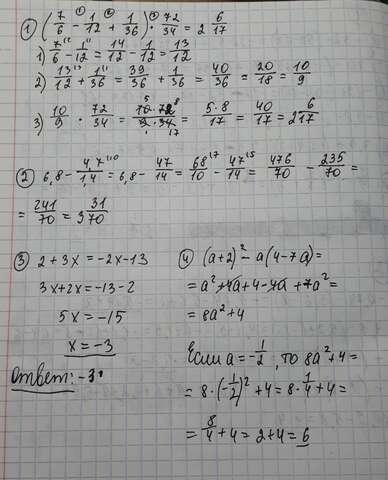 ① (7/6 - 1/12 + 1/36) · 72/34 = 2 6/17
1) 7/6 - 1/12 = 14/12 - 1/12 = 13/12
2) 13/12 + 1/36 = 39/36 + 1/36 = 40/36 = 20/18 = 10/9
3) 10/9 · 72/34 = 10·72/9·34 = 5·8/17 = 40/17 = 2 6/17
② 6,8 - 4,7/1,4 = 6,8 - 47/14 = 68/10 - 47/14 = 476/70 - 235/70 =
= 241/70 = 3 31/70
③ 2 + 3x = -2x - 13
3x + 2x = -13 - 2
5x = -15
x = -3
Ответ: -3
④ (a+2)² - a(4-7a) =
= a² + 4a + 4 - 4a + 7a² =
= 8a² + 4
Если a = -1/2, то 8a² + 4 =
= 8·(-1/2)² + 4 = 8·1/4 + 4 =
= 8/4 + 4 = 2 + 4 = 6